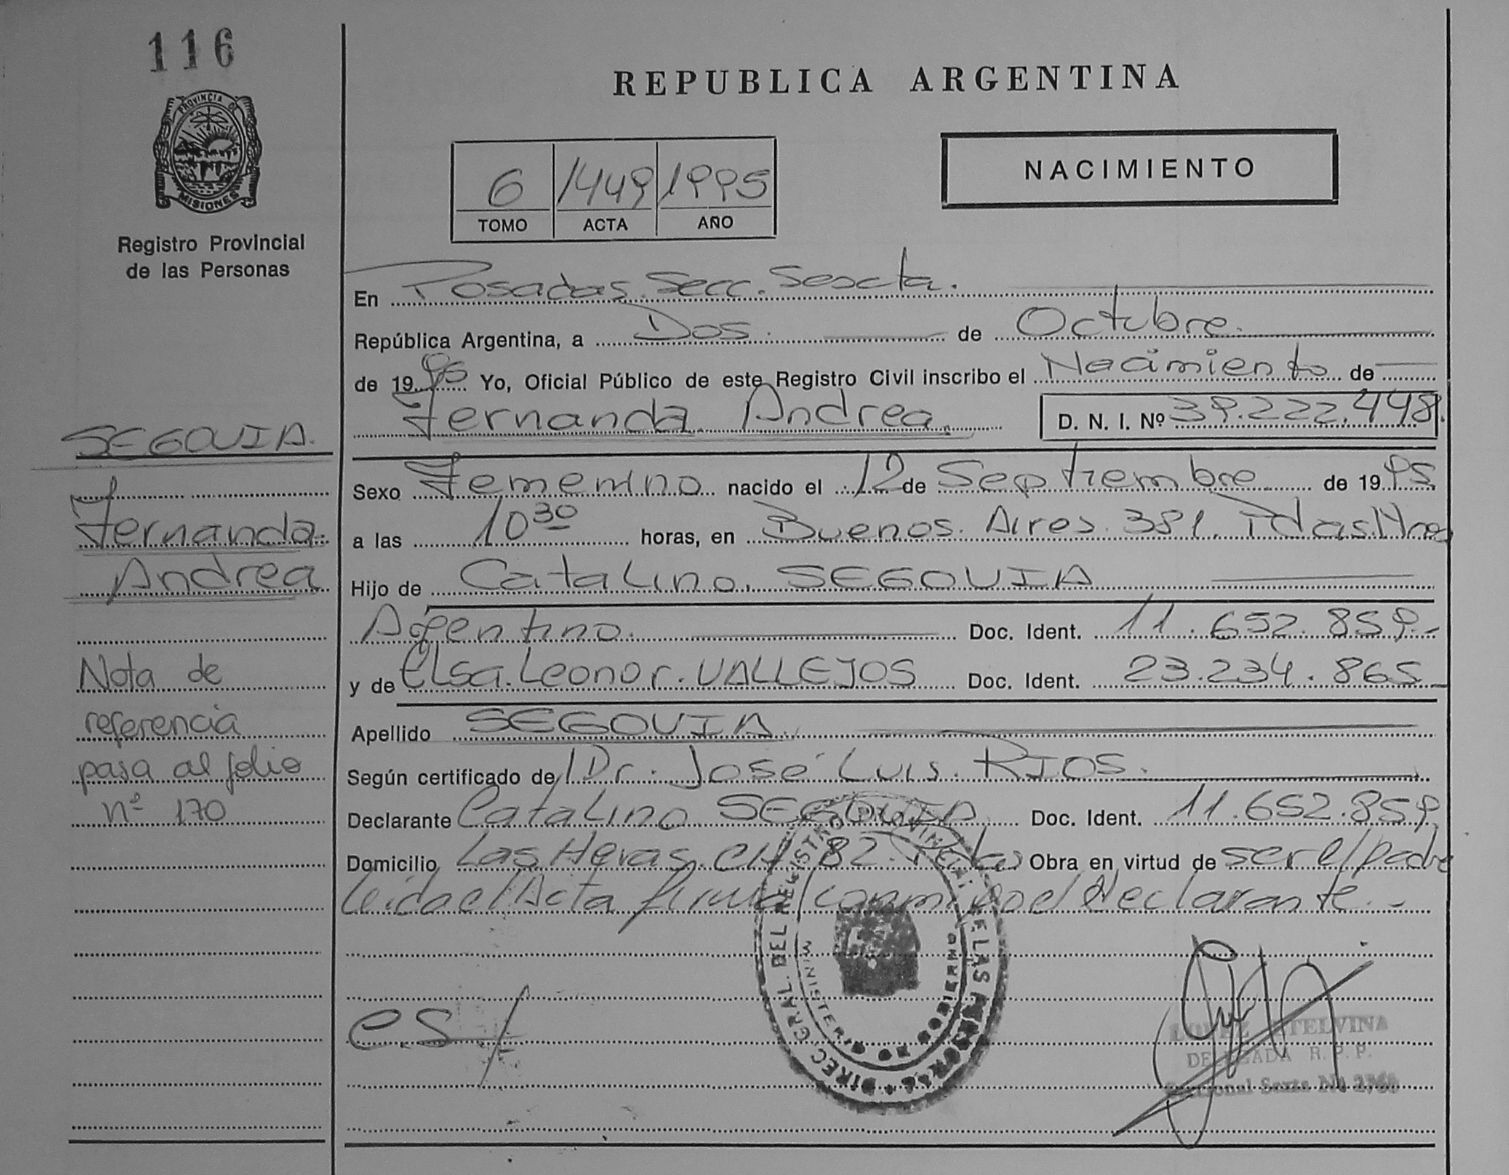 116
PROVINCIA DE
MISIONES
Registro Provincial
de las Personas
REPUBLICA ARGENTINA
6 1449 1995
TOMO ACTA AÑO
NACIMIENTO
En Posadas Secc. Sexta.
República Argentina, a Dos de Octubre.
de 1995 Yo, Oficial Público de este Registro Civil inscribo el Nacimiento de
Fernanda Andrea D. N. I. Nº 39.222.448.
SEGOVIA.
Fernanda
Andrea
Sexo Femenino nacido el 12 de Septiembre de 1995
a las 10 30 horas, en Buenos Aires 381. Pdas. Mnes
Hijo de Catalino SEGOVIA
Argentino. Doc. Ident. 11.652.859.-
y de Elsa Leonor VALLEJOS Doc. Ident. 23.234.865
Apellido SEGOVIA
Según certificado de Dr. José Luis RIOS.
Declarante Catalino SEGOVIA Doc. Ident. 11.652.859.
Domicilio Las Heras CH 82 Pdas Obra en virtud de ser el padre
leida el Acta firma conmigo el declarante.-
Nota de
referencia
pasa al folio
nº 170
es
DIREC. GRAL. DEL REGISTRO PROVINCIAL DE LAS PERSONAS
MINISTERIO DE GOBIERNO
LOPEZ ETELVINA
DELEGADA R. P. P.
Seccional Sexta